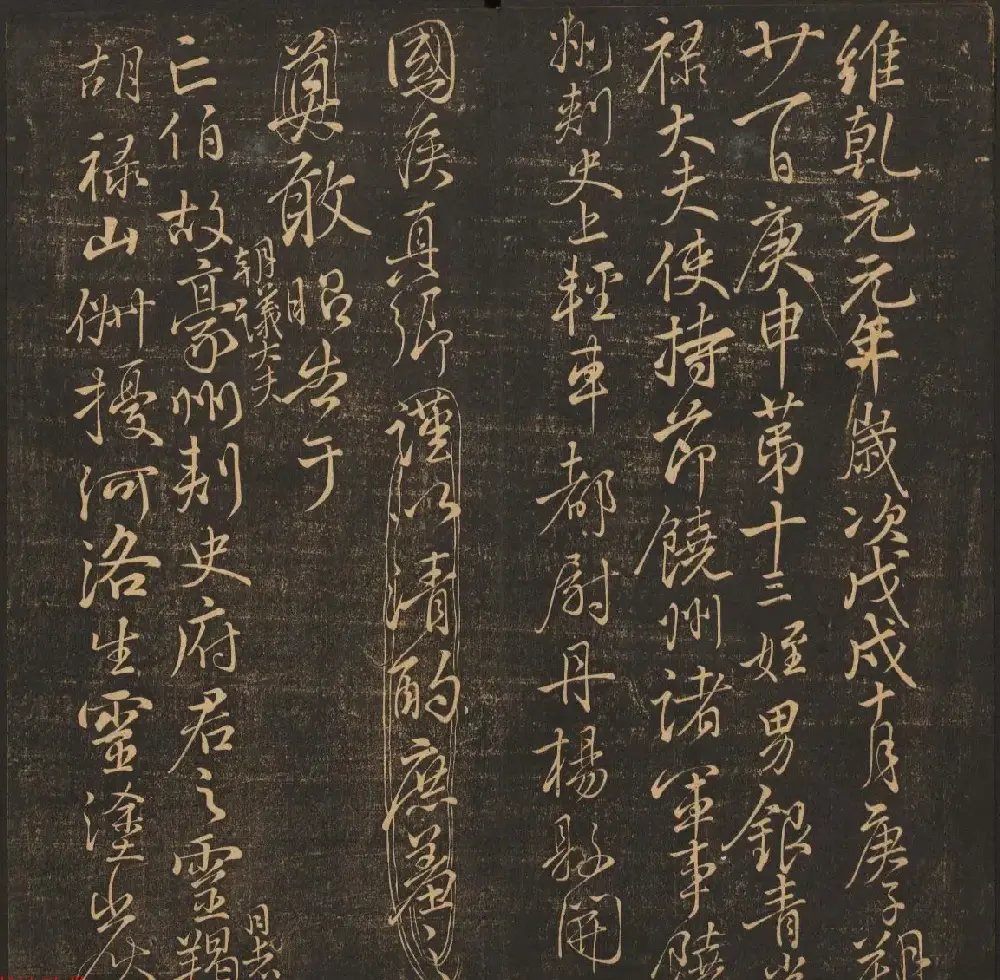 維乾元元年歲次戊戌十月庚子朔
廿一日庚申苐十三姪男銀青光
禄大夫使持節饒州諸軍事饒
州刾史上輕車都尉丹楊縣開
國侯真卿謹以清酌庶羞之
奠敢昭告于
朝議大夫
亡伯故豪州刾史府君之靈羯
日者
胡禄山俶擾河洛生靈塗炭